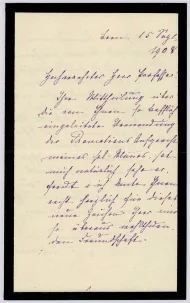 Bern 15 Sept.
1908
Hochverehrter Herr Professor
Ihre Mittheilung über
die von Ihnen so
eingeleitete Verwendung
der
meines sel. Mannes, hat
mich natürlich sehr er-
freut und danke Ihnen
recht herzlich für dieses
neue Zeichen Ihrer mir
so überaus
den Freundschaft.